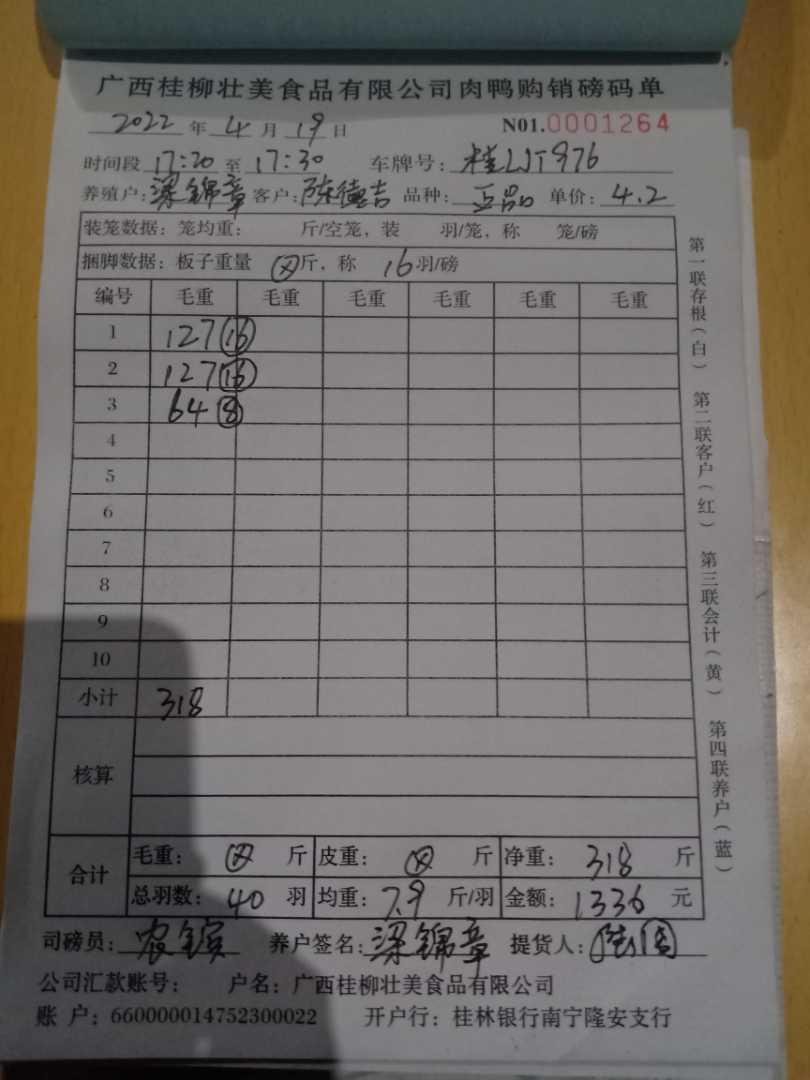 广西桂柳壮美食品有限公司肉鸭购销磅码单
2022 年 4 月 19 日 N01.0001264
时间段 17:20 至 17:30 车牌号：桂 976
养殖户：梁锦章 客户：陈德吉 品种：正品 单价：4.2
装笼数据：笼均重： 斤/空笼，装 羽/笼，称 笼/磅
捆脚数据：板子重量 斤，称 16 羽/磅
编号 毛重 毛重 毛重 毛重 毛重 毛重
1 127 16
2 127 16
3 64 8
4
5
6
7
8
9
10
小计 318
核算
合计 毛重： 斤 皮重： 斤 净重：318 斤
总羽数：40 羽 均重：7.9 斤/羽 金额：1336 元
司磅员：农 养户签名：梁锦章 提货人：
公司汇款账号： 户名：广西桂柳壮美食品有限公司
账 户：660000014752300022 开户行：桂林银行南宁隆安支行
第一联存根（白） 第二联客户（红） 第三联会计（黄） 第四联养户（蓝）